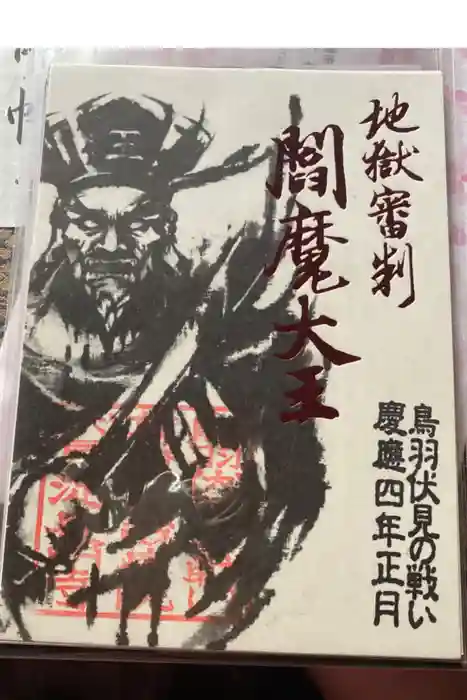 地獄審判
閻魔大王
王
鳥羽伏見の戦い
慶應四年正月